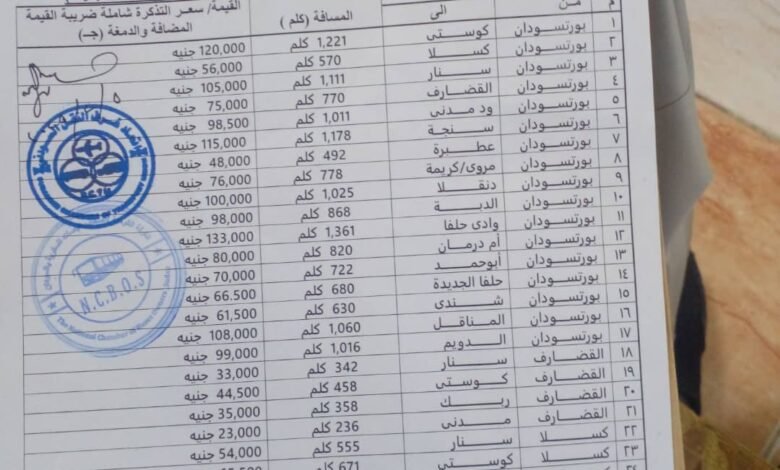 م من الى المسافة (كلم) القيمة/ سعر التذكرة شاملة ضريبة القيمة المضافة والدمغة (جـ)
١ بورتسودان كوستى 1,221 كلم 120,000 جنيه
٢ بورتسودان كسلا 570 كلم 56,000 جنيه
٣ بورتسودان سنار 1,111 كلم 105,000 جنيه
٤ بورتسودان القضارف 770 كلم 75,000 جنيه
٥ بورتسودان ود مدنى 1,011 كلم 98,500 جنيه
٦ بورتسودان سنجة 1,178 كلم 115,000 جنيه
٧ بورتسودان عطبرة 492 كلم 48,000 جنيه
٨ بورتسودان مروى/كريمة 778 كلم 76,000 جنيه
٩ بورتسودان دنقلا 1,025 كلم 100,000 جنيه
١٠ بورتسودان الدبة 868 كلم 98,000 جنيه
١١ بورتسودان وادى حلفا 1,361 كلم 133,000 جنيه
١٢ بورتسودان أم درمان 820 كلم 80,000 جنيه
١٣ بورتسودان أبوحمد 722 كلم 70,000 جنيه
١٤ بورتسودان حلفا الجديدة 680 كلم 66.500 جنيه
١٥ بورتسودان شندى 630 كلم 61,500 جنيه
١٦ بورتسودان المناقل 1,060 كلم 108,000 جنيه
١٧ بورتسودان الدويم 1,016 كلم 99,000 جنيه
١٨ القضارف سنار 342 كلم 33,000 جنيه
١٩ القضارف كوستى 458 كلم 44,500 جنيه
٢٠ القضارف ربك 358 كلم 35,000 جنيه
٢١ القضارف مدنى 236 كلم 23,000 جنيه
٢٢ كسلا سنار 555 كلم 54,000 جنيه
٢٣ كسلا كوستى 671 كلم
N.C.B.O.S